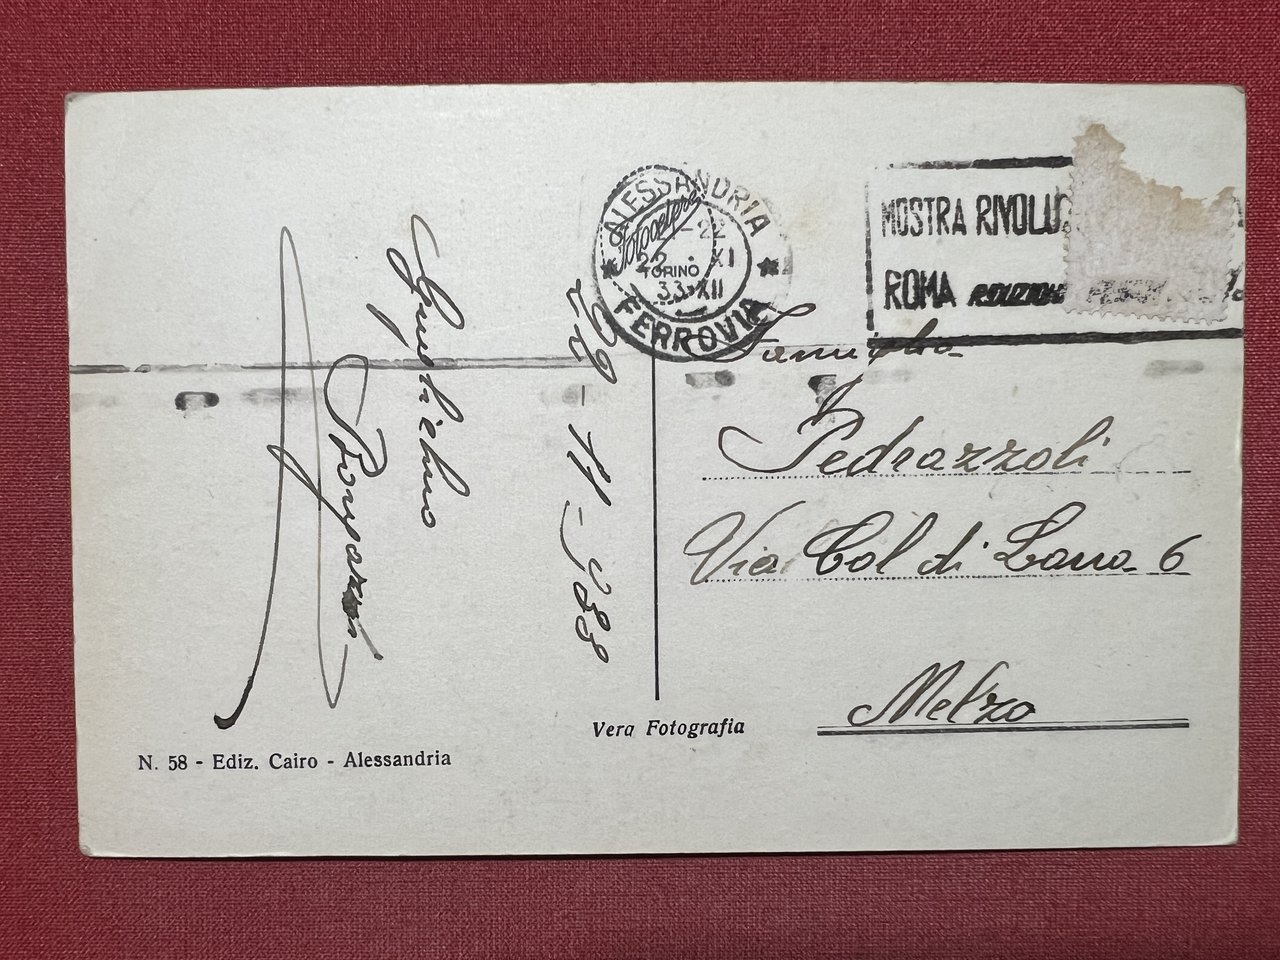 ALESSANDRIA
Fotocelere
21-22
22. XI
TORINO
33-XII
FERROVIA
MOSTRA RIVOLUZ
ROMA RIDUZION
Famiglia
Pedrazzoli
Via Col di Lana 6
Melzo
22-11-933
Vera Fotografia
N. 58 - Ediz. Cairo - Alessandria